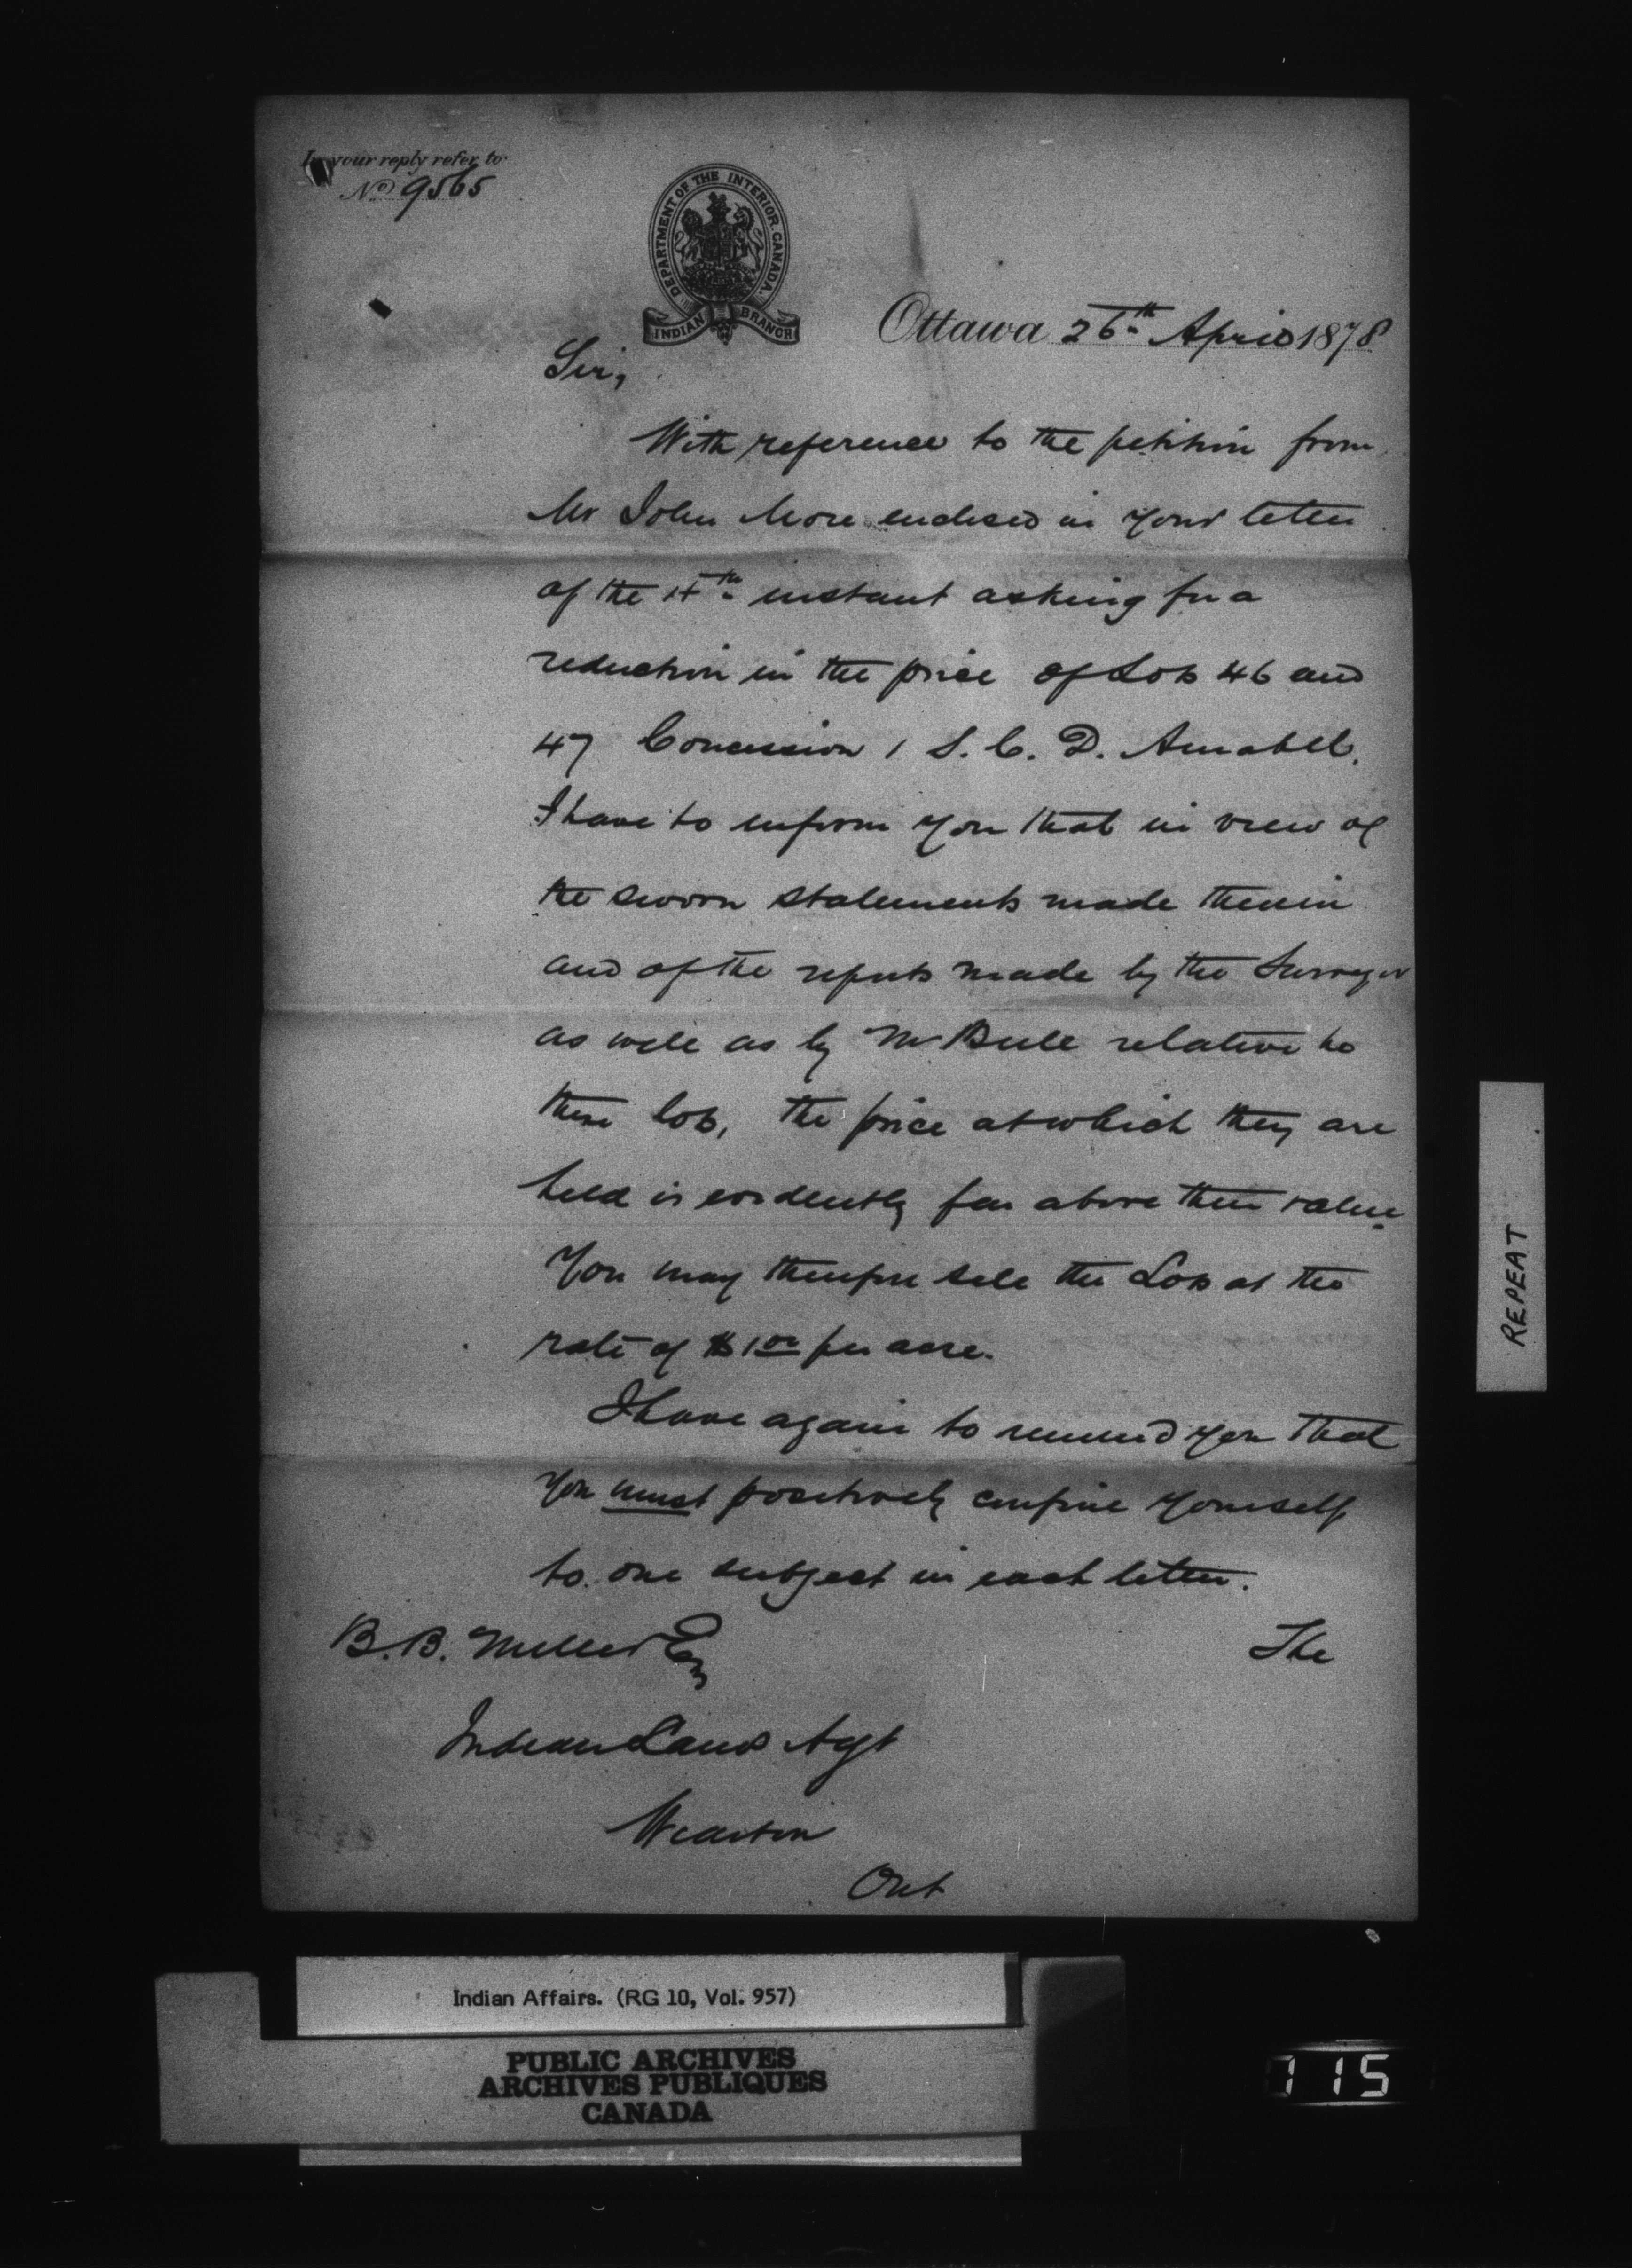 In your reply refer to
No 9565
DEPARTMENT OF THE INTERIOR. CANADA.
INDIAN BRANCH
Ottawa 26th April 1878
Sir,
With reference to the petition from
Mr John More enclosed in your letter
of the 4th instant asking for a
reduction in the price of Lots 46 and
47 Concession 1 S. C. D. Amabel.
I have to inform you that in view of
the sworn statements made therein
and of the reports made by the Surveyor
as well as by Mr Bull relative to
these lots, the price at which they are
held is evidently far above their value.
You may therefore sell the Lots at the
rate of $1.00 per acre.
I have again to remind you that
you must positively confine yourself
to one subject in each letter.
The
B. B. Miller Esq
Indian Land Agt
Wiarton
Ont
REPEAT
Indian Affairs. (RG 10, Vol. 957)
PUBLIC ARCHIVES
ARCHIVES PUBLIQUES
CANADA
115